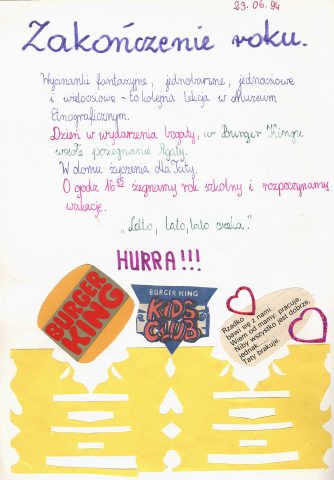 23.06.94
Zakończenie roku.
Wycinanki fantazyjne, jednobarwne, jednoosiowe
i wieloosiowe - to kolejna lekcja w Muzeum
Etnograficznym.
Dzień w wydarzenia bogaty, w Burger Kingu
wesołe pożegnanie Agaty.
W domu życzenia dla Taty.
O godz 16⁴⁵ żegnamy rok szkolny i rozpoczynamy
wakacje.
„Lato, lato, lato czeka.."
HURRA!!!
BURGER
KING
BURGER KING
KIDS
CLUB
Rzadko
bawi się z nami.
Wiem od mamy: pracuje.
Niby wszystko jest dobrze,
jednak...
Taty brakuje.